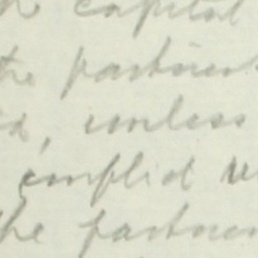 capital
the partners
unless
conflict
the partner